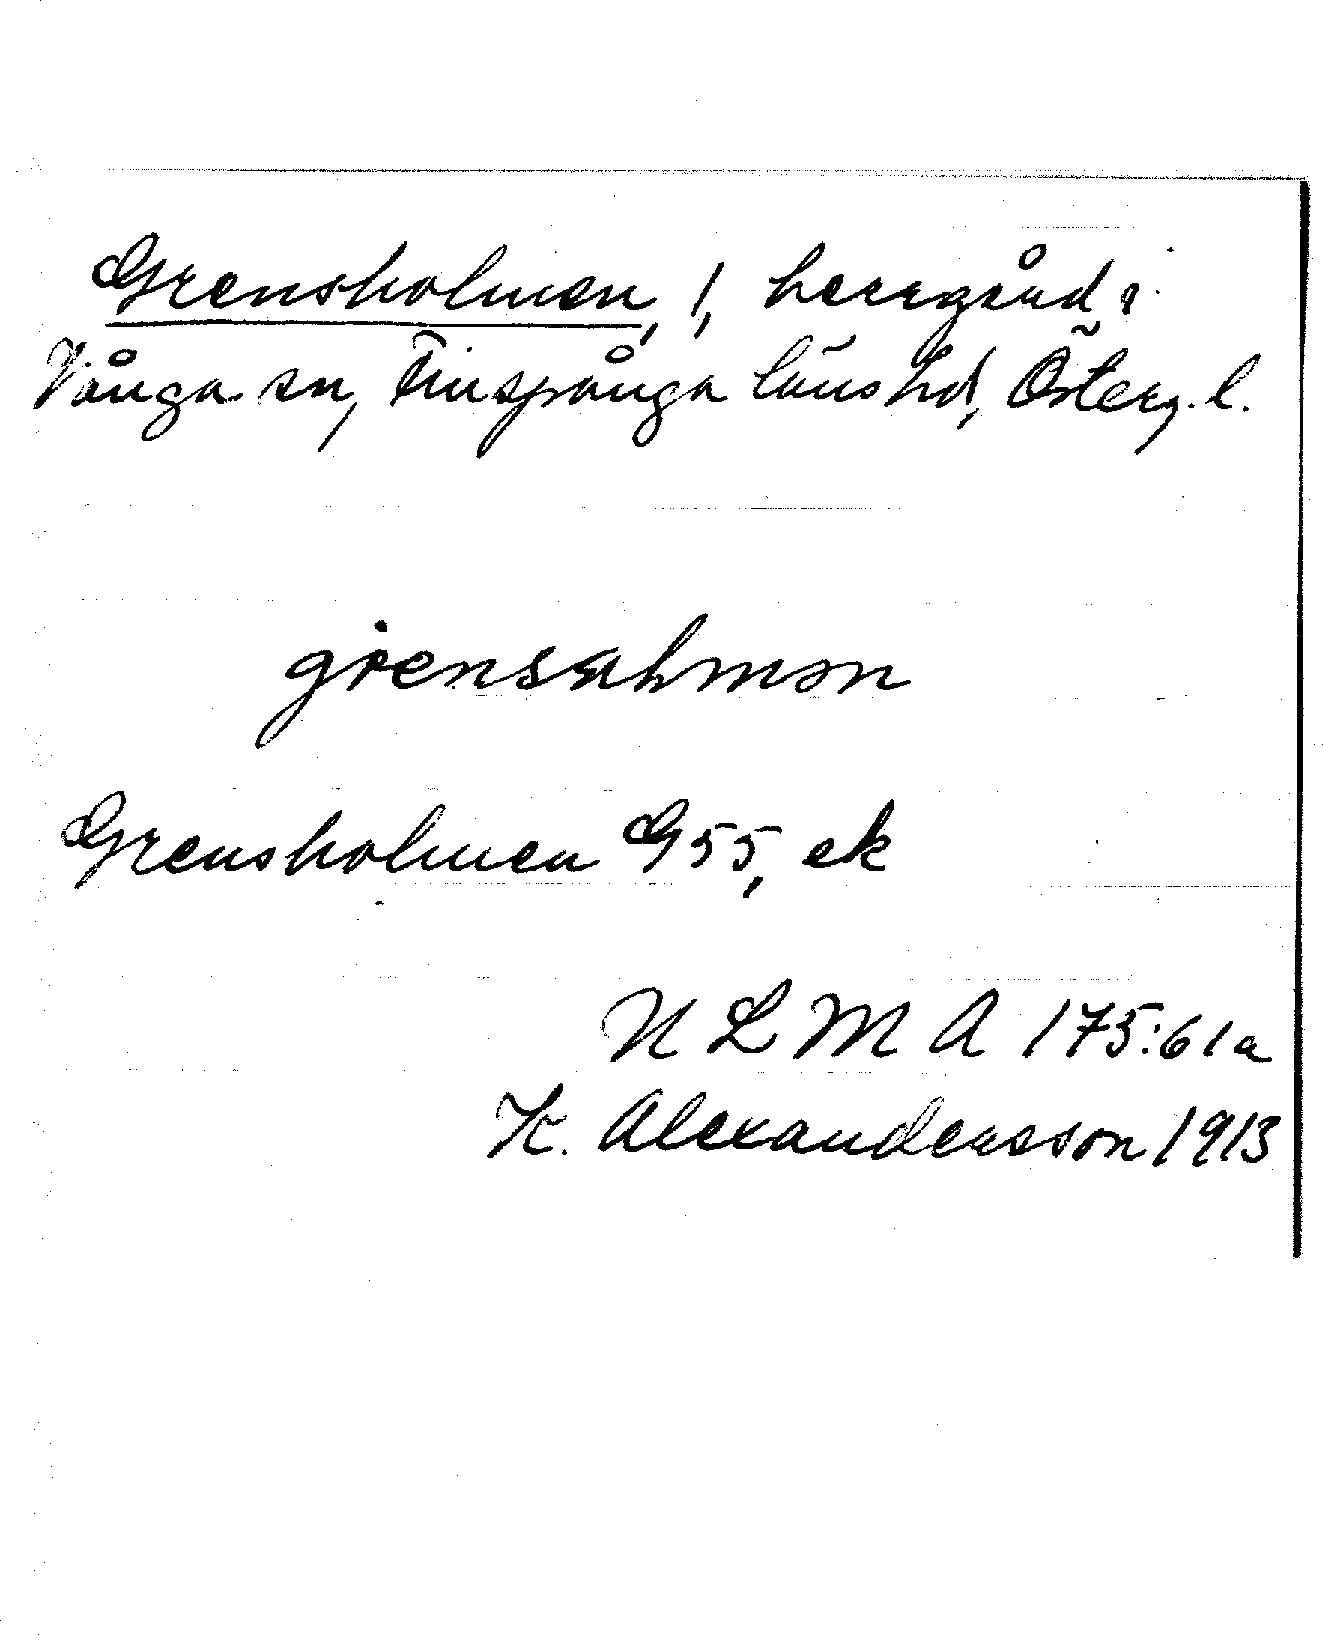 Grensholmen, 1, herrgård i
Vånga sn, Finspånga läns hd, Österg. l.
grensahmən
Grensholmen G55, ek
N L M A 175:61a
K. Alexandersson 1913